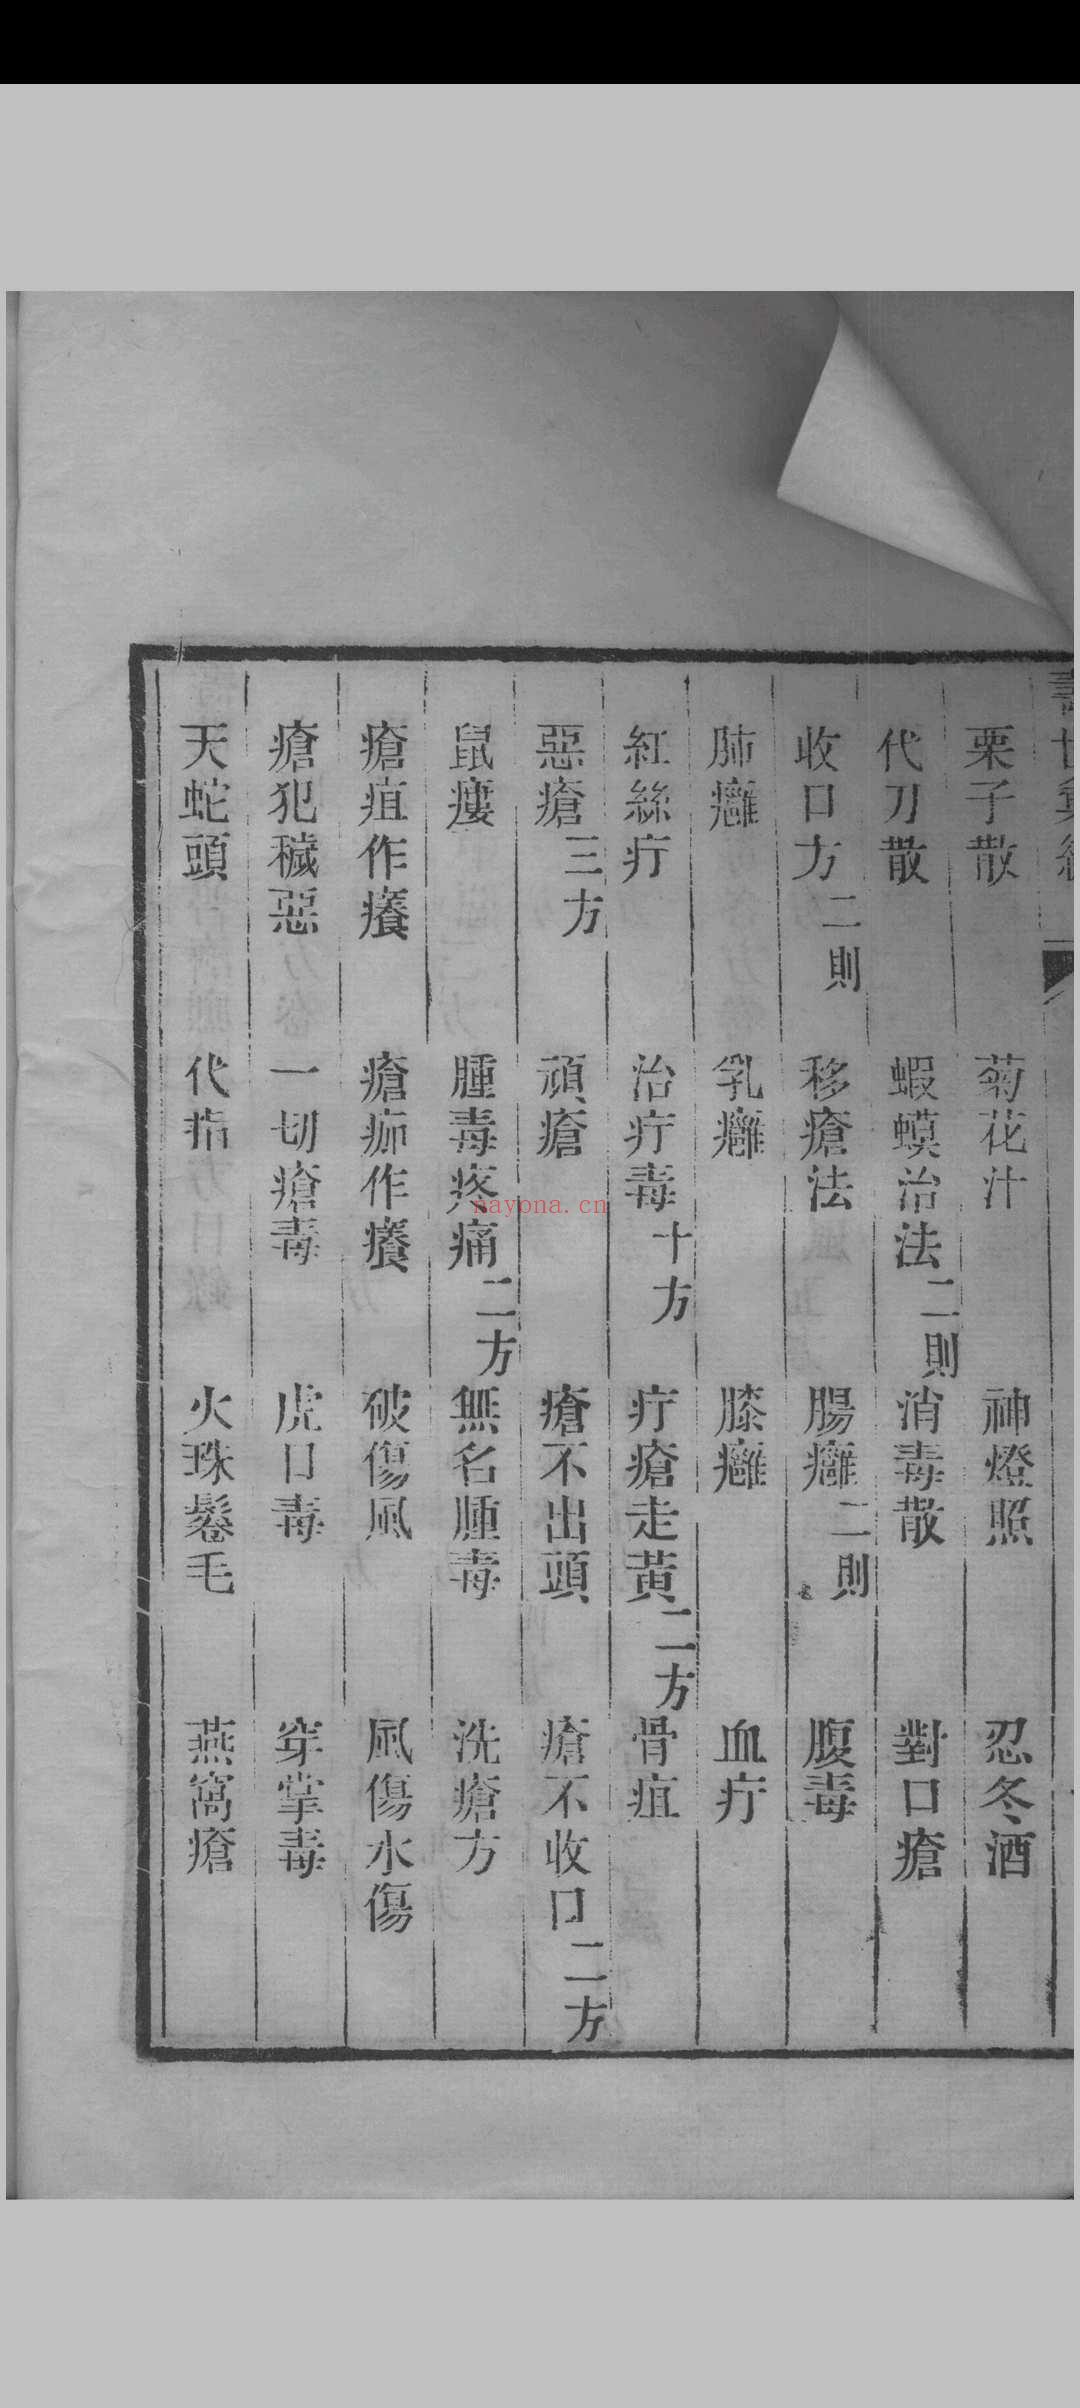 壽世彙編
栗子散 菊花汁 神燈照 忍冬酒
代刀散 蝦蟆治法二則 消毒散 對口瘡
收口方二則 移瘡法 腸癰二則 腹毒
肺癰 乳癰 膝癰 血疔
紅絲疔 治疔毒十方 疔瘡走黃二方 骨疽
惡瘡三方 頑瘡 瘡不出頭 瘡不收口二方
鼠瘻 腫毒疼痛二方 無名腫毒 洗瘡方
瘡疽作癢 瘡痂作癢 破傷風 風傷水傷
瘡犯穢惡 一切瘡毒 虎口毒 穿掌毒
天蛇頭 代指 火珠鬈毛 燕窩瘡
nayona.cn